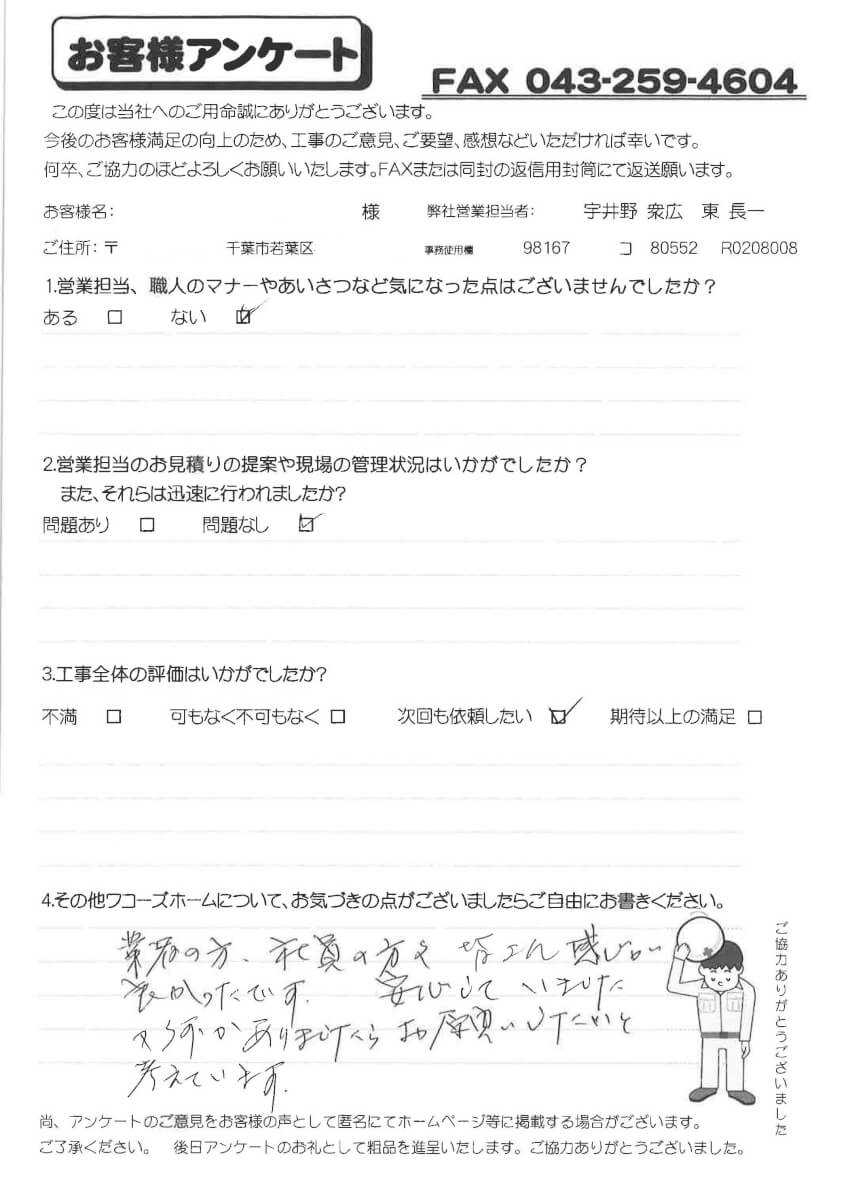 お客様アンケート
FAX 043-259-4604
この度は当社へのご用命誠にありがとうございます。
今後のお客様満足の向上のため、工事のご意見、ご要望、感想などいただければ幸いです。
何卒、ご協力のほどよろしくお願いいたします。FAXまたは同封の返信用封筒にて返送願います。
お客様名: 様 弊社営業担当者: 宇井野 衆広 東 長一
ご住所:〒 千葉市若葉区 事務使用欄 98167 コ 80552 R0208008
1.営業担当、職人のマナーやあいさつなど気になった点はございませんでしたか?
ある □ ない ☑
2.営業担当のお見積りの提案や現場の管理状況はいかがでしたか?
また、それらは迅速に行われましたか?
問題あり □ 問題なし ☑
3.工事全体の評価はいかがでしたか?
不満 □ 可もなく不可もなく □ 次回も依頼したい ☑ 期待以上の満足 □
4.その他ワコーズホームについて、お気づきの点がございましたらご自由にお書きください。
業者の方、社員の方も 皆さん感じが
良かったです. 安心していました
又何かありましたらお願いしたいと
考えています.
ご協力ありがとうございました
尚、アンケートのご意見をお客様の声として匿名にてホームページ等に掲載する場合がございます。
ご了承ください。 後日アンケートのお礼として粗品を進呈いたします。ご協力ありがとうございました。